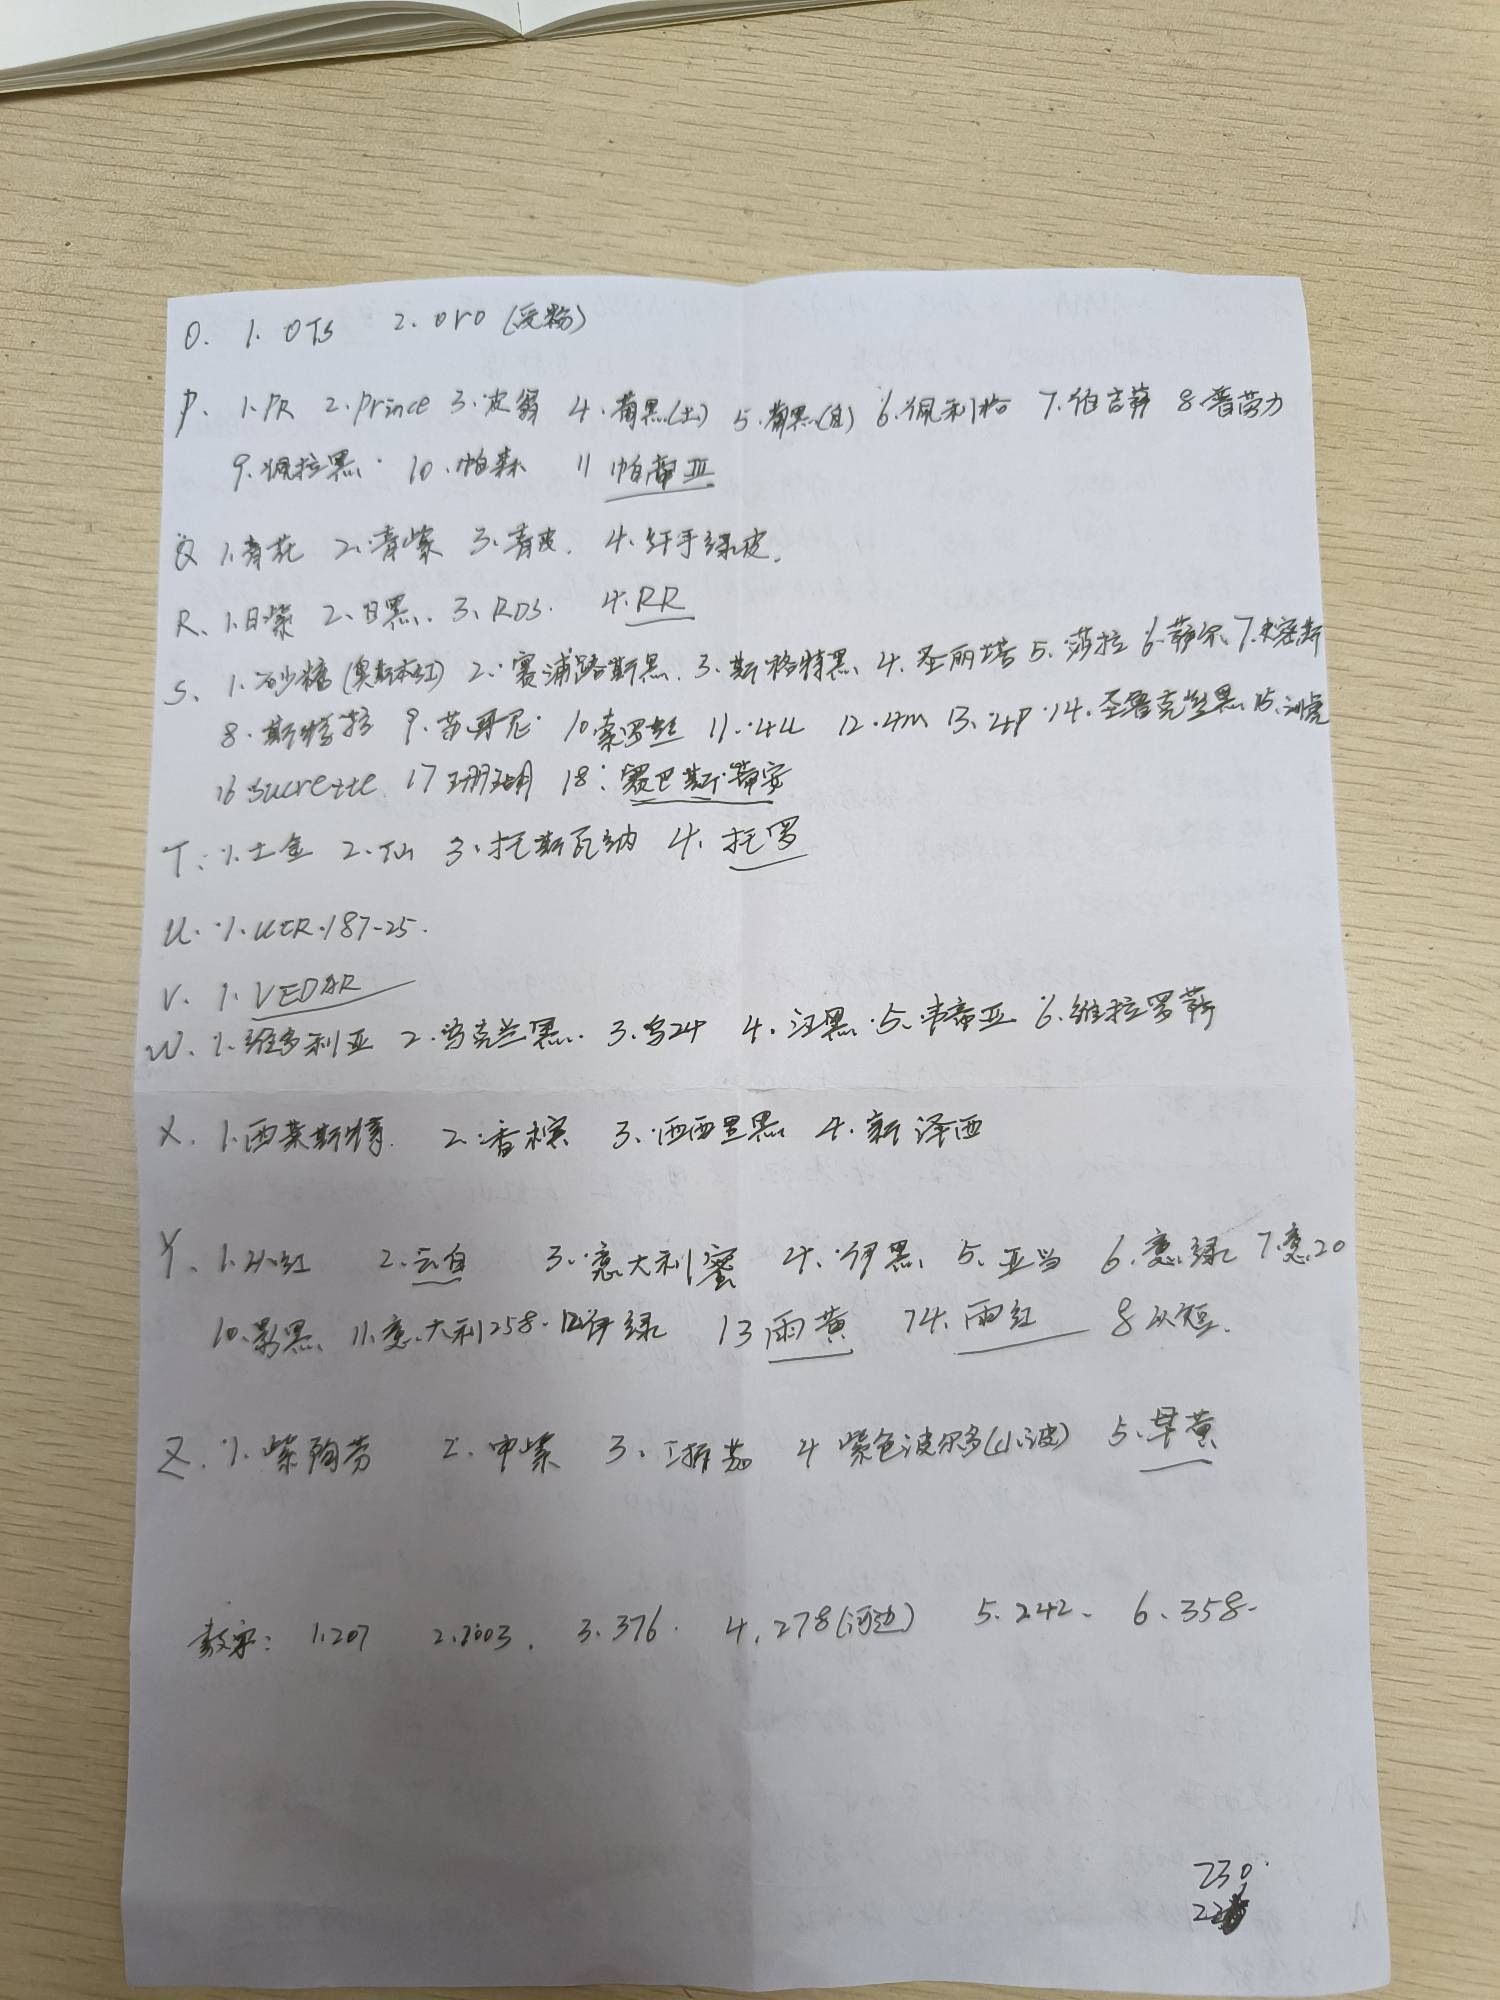 O. 1. OTS 2. oro (受粉)
P. 1. PR 2. prince 3. 波翁 4. 葡黑(土) 5. 葡黑(自) 6. 佩利格 7. 伯吉莽 8. 普劳力
9. 佩拉黑 10. 帕森 11 帕蒂亚
Q 1. 青花 2. 青紫 3. 青皮. 4. 纤手绿皮.
R. 1. 日紫 2. 日黑. 3. RDS. 4. RR
S. 1. 砂糖(奥斯本红) 2. 赛浦路斯黑. 3. 斯格特黑 4. 圣丽塔 5. 莎拉 6. 莎尔 7. 塞斯
8. 斯特拉 9. 苏哥尼 10 索罗 11. 4U 12. 4M 13. 4P 14. 圣鲁克兰黑 15.
16 Sucrette 17 珊瑚 18. 赛巴斯蒂安
T. 1. 土金 2. TM 3. 托斯瓦纳 4. 托罗
U. 1. UCR.187-25.
V. 1. VEDAR
W. 1. 维多利亚 2. 乌克兰黑. 3. 乌24 4. 汪黑. 5. 韦蒂亚 6. 维拉罗莎
X. 1. 西莱斯特. 2. 香槟 3. 西西里黑 4. 新泽西
Y. 1. 红 2. 云白 3. 意大利蜜 4. 伊黑 5. 亚当 6. 意绿 7. 意20
10. 影黑 11. 意大利258. 12 伊绿 13 雨黄 14. 雨红 8 短.
Z. 1. 紫陶芬 2. 中紫 3. 茄 4 紫色波尔多(小波) 5. 早黄
数字: 1. 207 2. 2003. 3. 376. 4. 278(河边) 5. 242. 6. 358.
230.